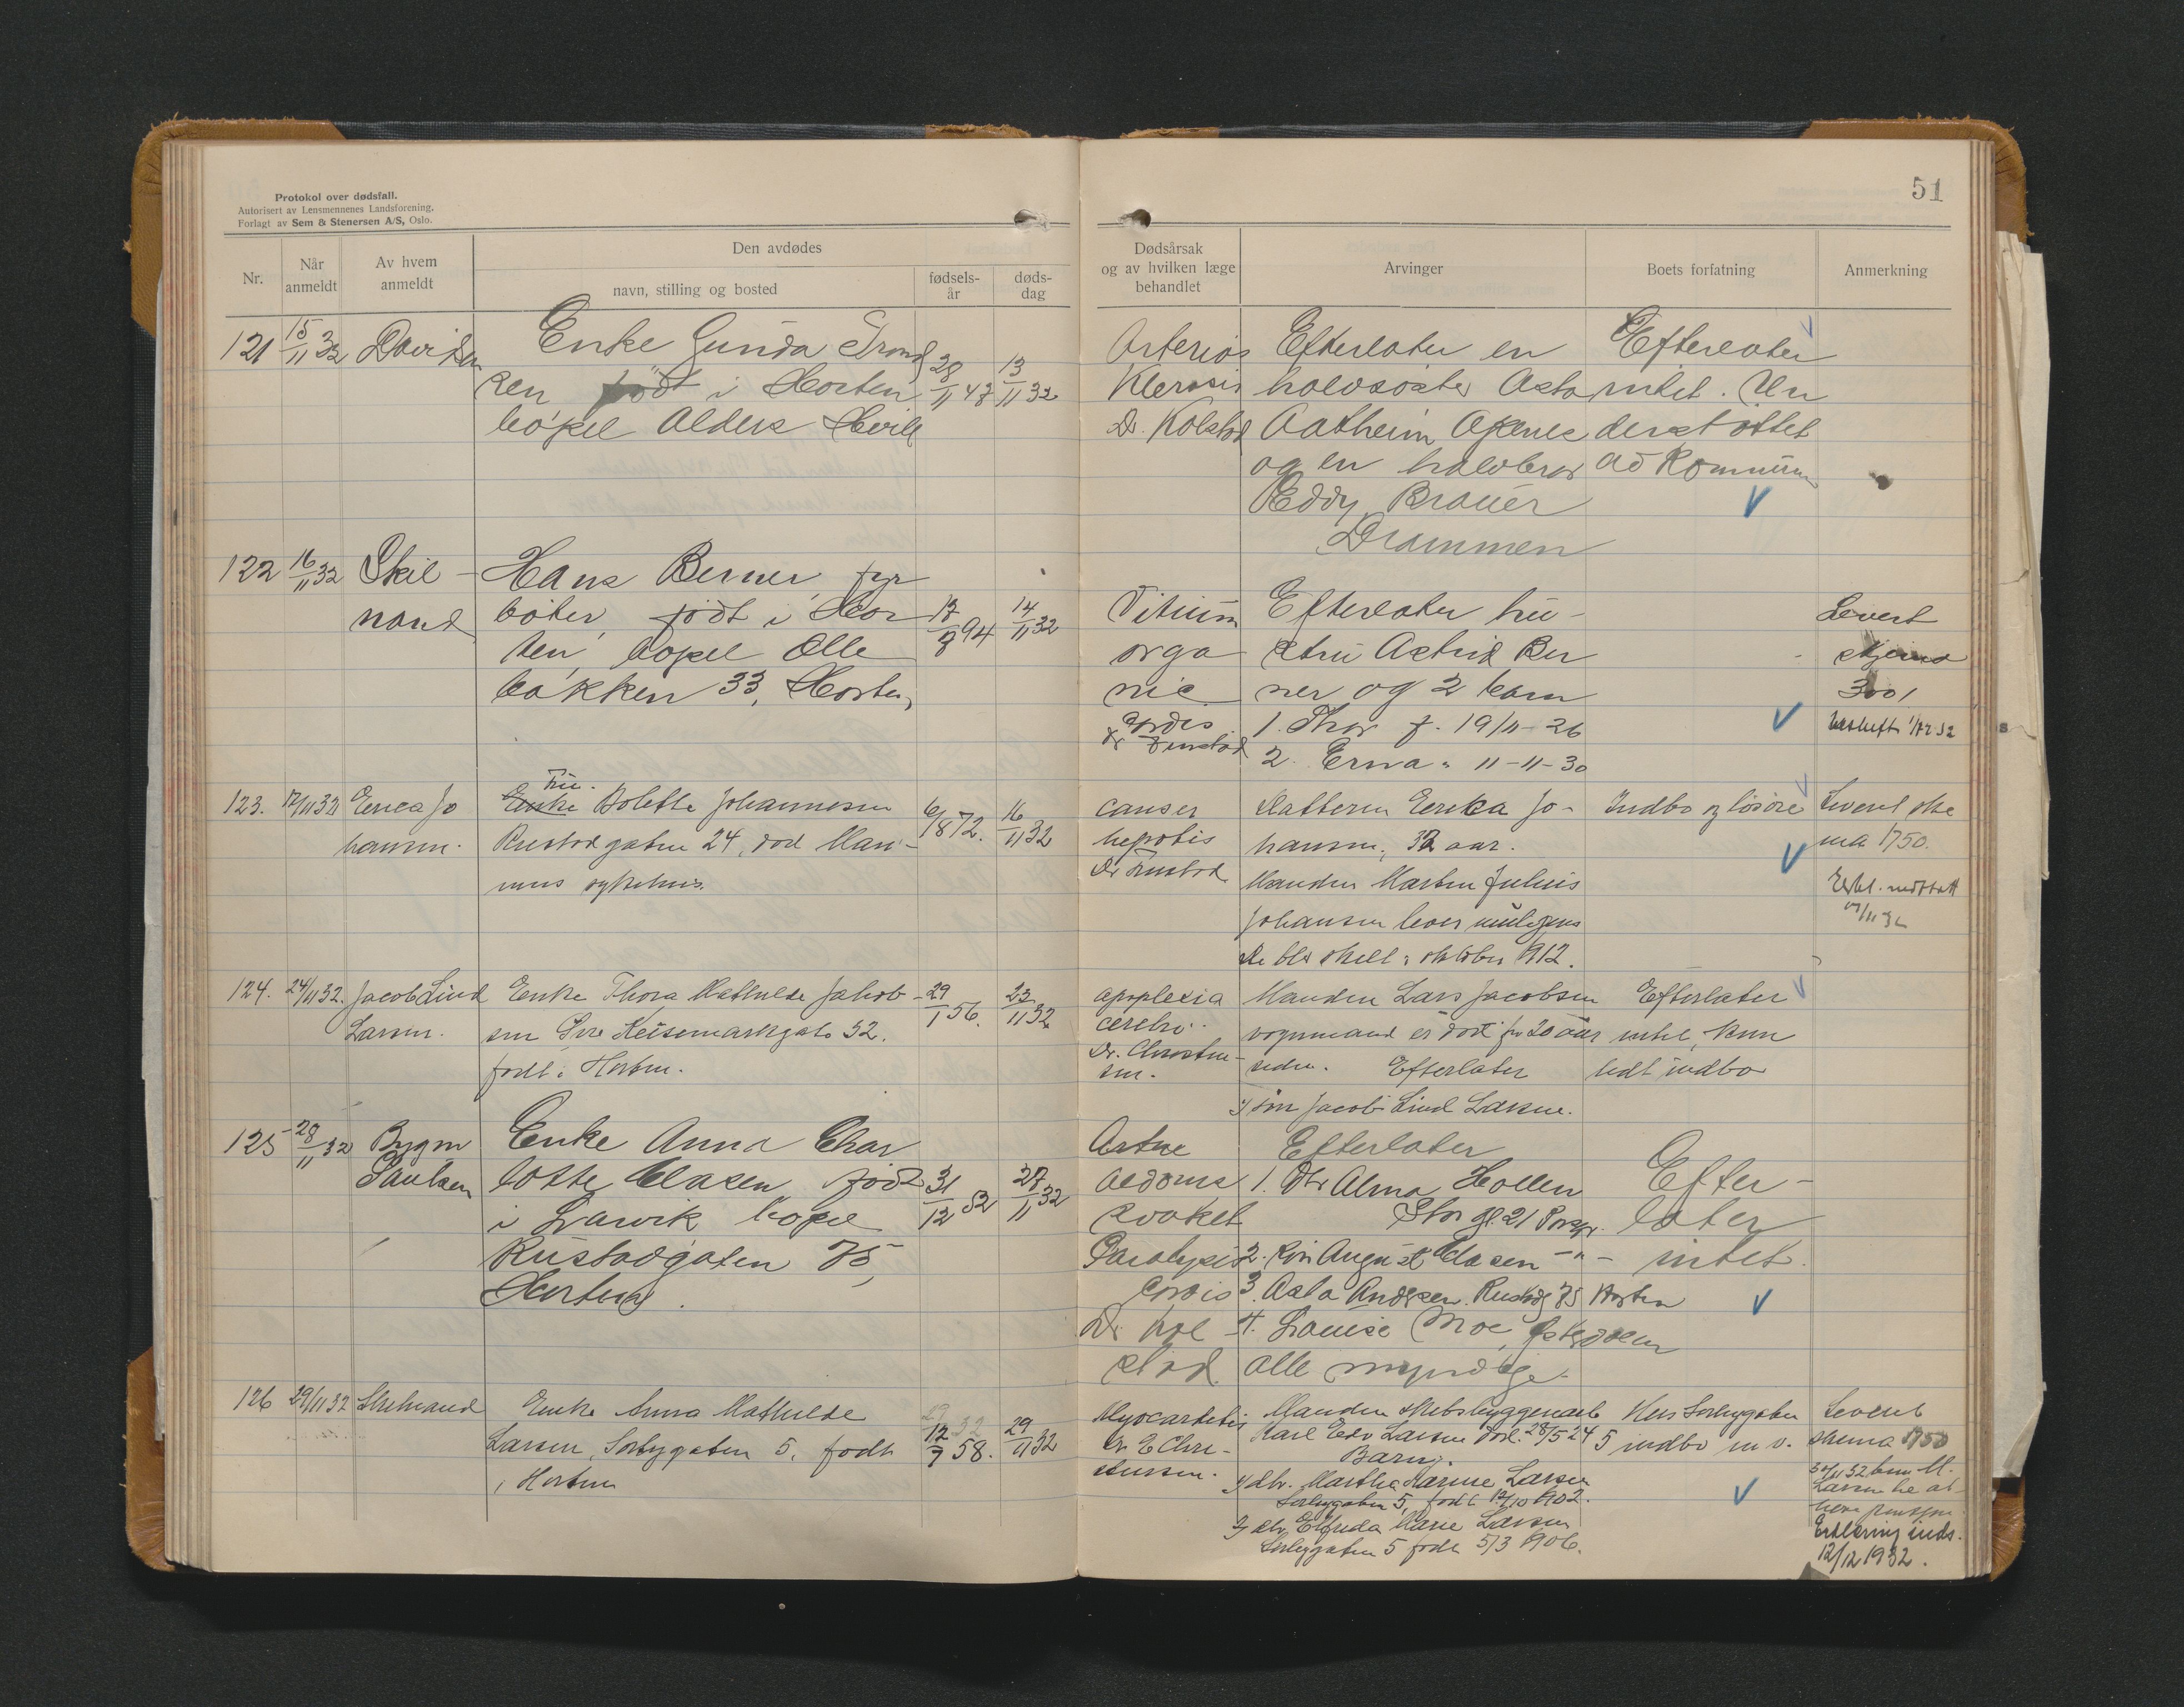 Protokol over dødsfall.
Autorisert av Lensmennenes Landsforening.
Forlagt av Sem & Stenersen A/S, Oslo.
51
Nr.
Når anmeldt
Av hvem anmeldt
Den avdødes
navn, stilling og bosted
fødsels-år
døds-dag
Dødsårsak og av hvilken læge behandlet
Arvinger
Boets forfatning
Anmerkning
121 15/11 32
Enke Gunda
sen født i Horten 28/11 47 13/11 32
bopel Alders Hvile
Arterios
klerosis
Dr. Kolstad
Efterlater en
halvsøster Asta
og en halvbror
Eddy Brauer
Drammen
Efterlater
intet. Un
derstøttet
av Kommun
122 16/11 32 Skil-
nand
Hans Berner, fyr
bøter, født i Hor
ten, bopel Olle
bakken 33, Horten
14/11 32
Vitium
orga
nic
cordis
Efterlater hu-
stru Astrid Ber
ner og 2 barn
1. Thor f. 19/11-26
2. Erna " 11-11-30
Levert
skjema
3001
123. 17/11 32 Jo
hansen.
Fru.
Enke Bolette Johannesen
Rustadgaten 24, død
sykehus.
6/8 72. 16/11 32
cancer
hepatis
Datteren Jo-
hansen, 32 aar.
Manden Martin Julius
Johansen lever muligens
De blev skilt i oktober 1912.
Indbo og løsøre
Levert ske
ma 1750.
124. 24/11 32. Jacob Lind
Larsen.
Enke Thora Mathilde Jakob-
sen 32.
født i Horten.
29/1 56. 23/11 32
apoplexia
cerebri.
Dr. Christen-
sen.
Manden Lars Jacobsen
vognmand er død for 20 aar
siden. Efterlater
1) søn Jacob Lind Larsen.
Efterlater
intet, kun
lidt indbo
125 28/11 32 Bygm
Paulsen
Enke Anna Char
lotte Clasen født
i Larvik bopel
Rustadgaten 75,
Horten.
31/12 52 27/11 32
alderdoms
svakhet
Paralysis
Cordis
Dr. Kol-
stad
Efterlater
1. Dtr Alma Hollen
Storgt. 21 Porsgr.
2. August Clasen -"-
3. Asta Andersen. Rustadg 75 Horten
4. Louise Moe,
alle myndige.
Efter-
later
intet.
126 29/11 32
Enke Anna Mathilde
Larsen, Sørbygaten 5, født
i Horten
12/7 58. 29/11 32
Myocarditis
Dr. E Chri-
stensen.
Manden
Karl Edv Larsen død. 28/5 24
Barn.
1) dtr. Martha Karine Larsen
Sørbygaten 5, født 12/10 1902.
2) dtr. Elfrida Marie Larsen
Sørbygaten 5 født 5/3 1906.
Hus Sørbygaten
5 indbo m. v.
Levert
skema 1750
Larsen
Erklæring inds.
12/12 1932.